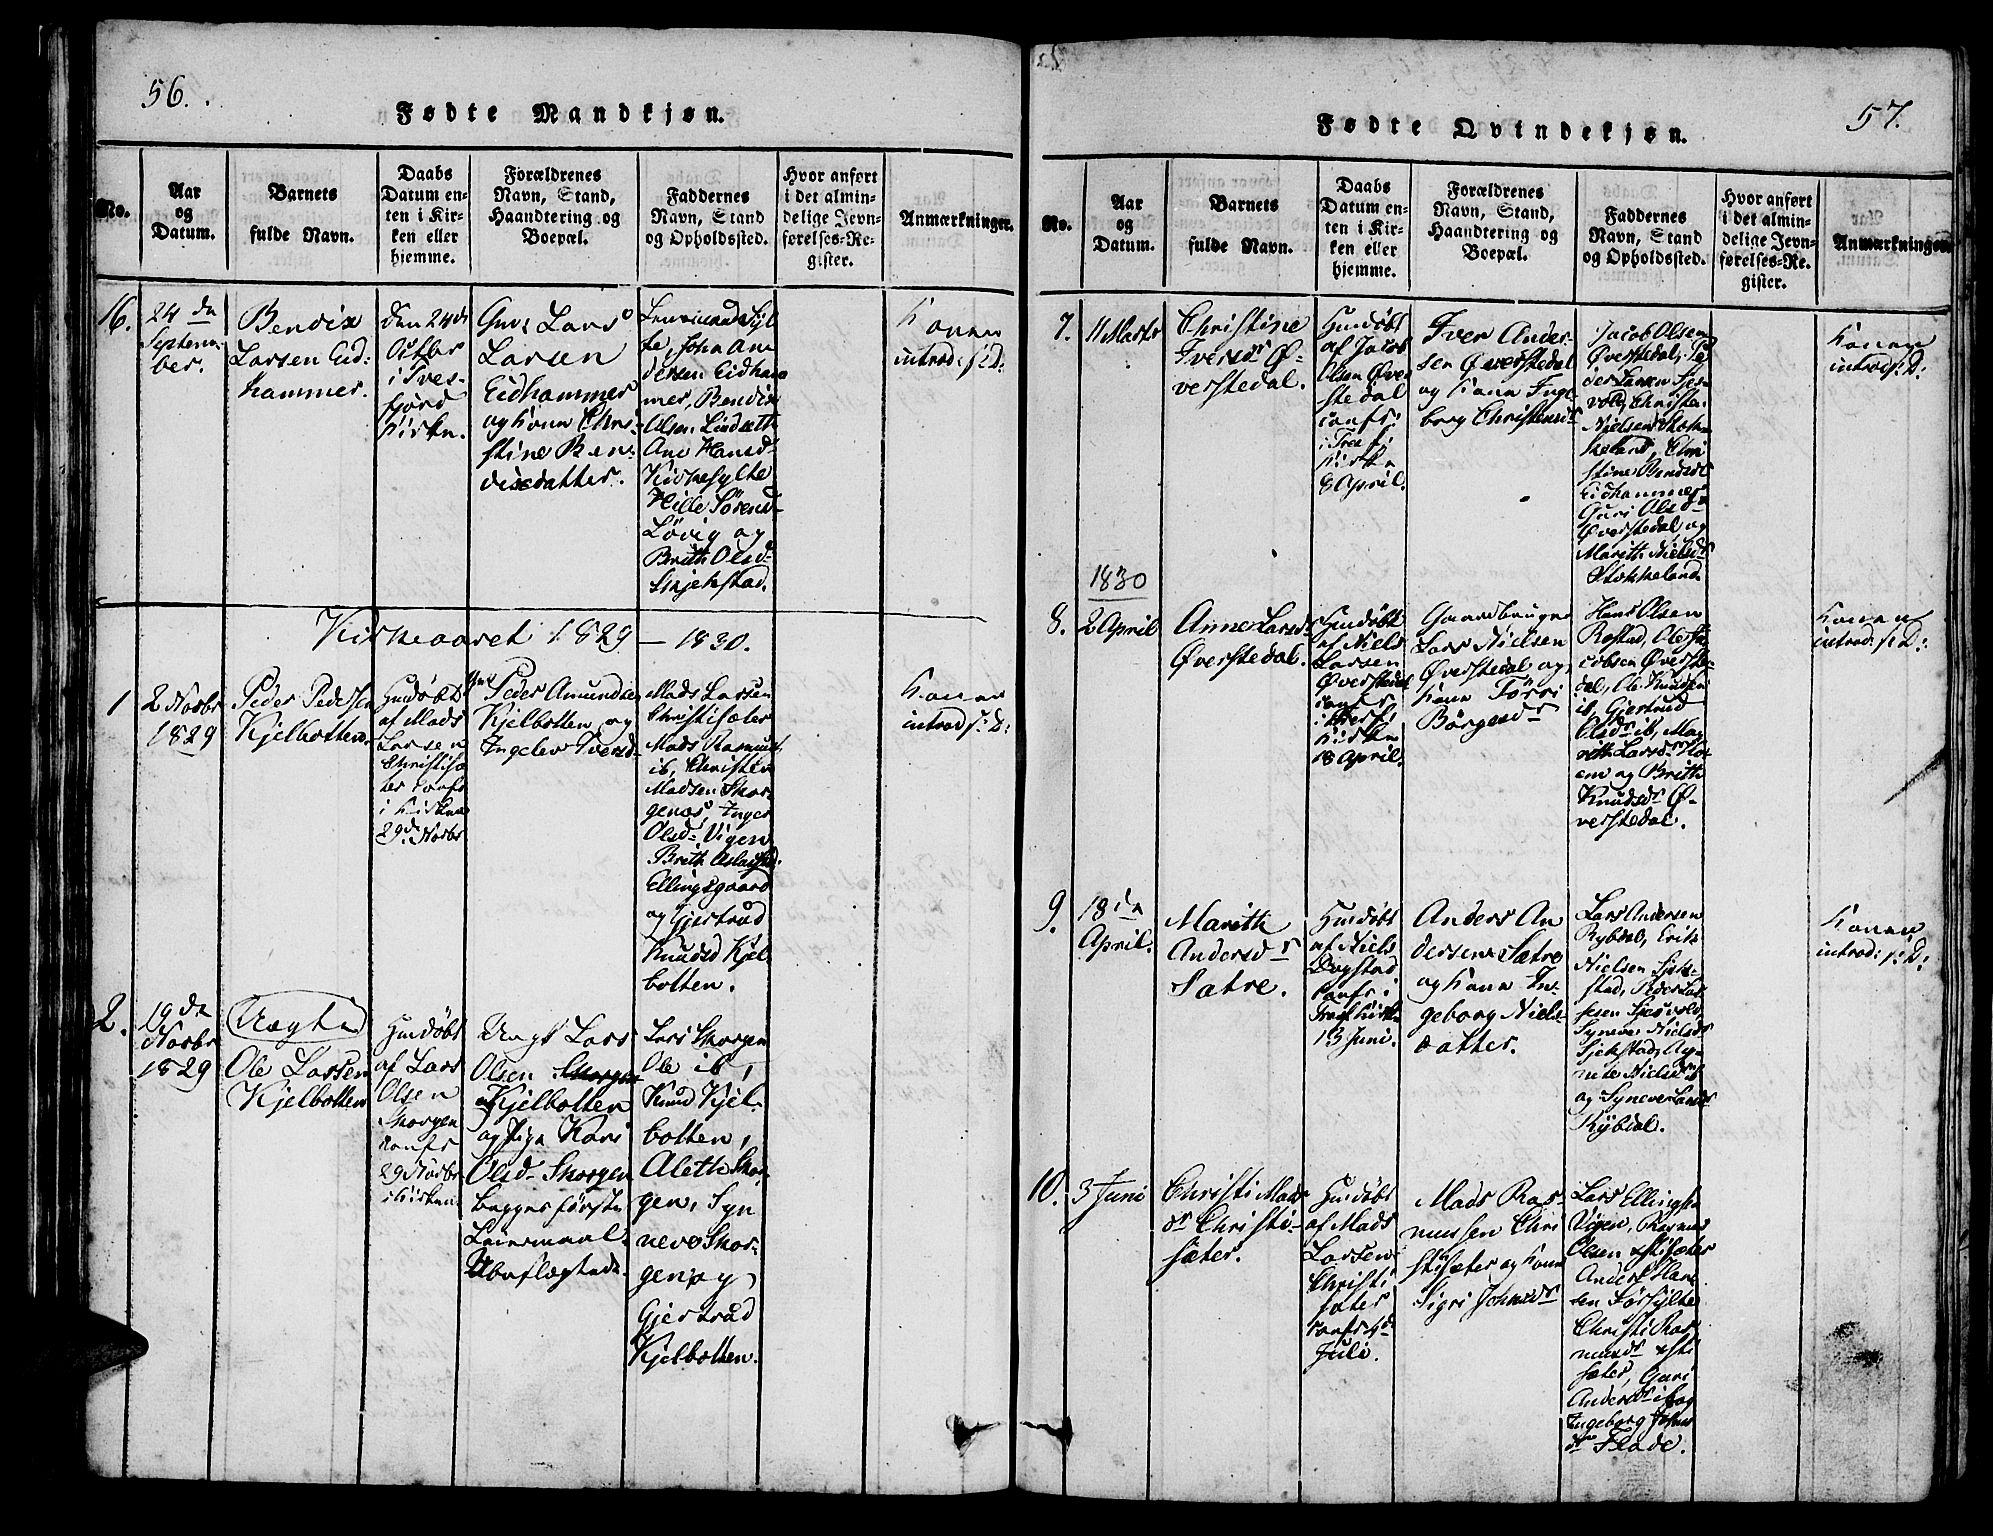 56.
Fødte Mandkjøn.
No.
Aar
og
Datum.
Barnets
fulde Navn.
Daabs
Datum en-
ten i Kir-
ken eller
hjemme.
Forældrenes
Navn, Stand,
Haandtering og
Boepæl.
Faddernes
Navn, Stand
og Opholdssted.
Hvor anført
i det almin-
delige Jevn-
førelses-Re-
gister.
Anmærkninger.
16.
24 de
Septem-
ber.
Bendix
Larsen Eid-
hammer.
den 24 de
Octbr
i Tres-
fjord
Kirke.
Gm: Lars
Larsen
Eidhammer
og Kone Chri-
stine Ben-
dixdatter.
Lensmand Syl-
te, John An-
dersen Eidham-
mer, Bendix
Olsen Lindsæth
Ane Hansd-
Kirkesylte
Hille Sørend-
Løvig og
Brith Olsd-
Skjelstad.
Konen
introd: s: D:
Kirkeaaret 1829 — 1830.
1
2 Novbr
1829
Peder Pedersen
Kjelbotten.
Hmdøbt
af Mads
Larsen
Christisæ-
ter confr
i Kirken
29 de Novbr
Gm:
Peder Amundsen
Kjelbotten og
Ingelev Iversd-
Mads Larsen
Christisæter
Mads Rasmus.
ib, Christen
Madsen Skor-
genæs, Inger
Olsd- Vigen
Brith Aslaksd:
Ellingsgaard
og Gjertrud
Knudsd Kjel-
botten.
Konen
introd s: D:
2.
19 de
Novbr
1829
Uægte
Ole Larsen
Kjelbotten
Hmdøbt
af Lars
Olsen
Skorgen
confr
29 Novbr
i Kirken
Ungk Lars
Olsen Skorgen
Kjelbotten
og Pige Kari
Olsd- Skorgen
begges første
Leiermaal.
Ubeslægtede.
Lars Skorgen
Ole ib,
Knud Kjel-
botten,
Aleth Skor-
gen, Syn
neve Skor-
gen og
Gjertrud
Kjelbotten.
57.
Fødte Qvindekjøn.
No.
Aar
og
Datum.
Barnets
fulde Navn.
Daabs
Datum en-
ten i Kir-
ken eller
hjemme.
Forældrenes
Navn, Stand,
Haandtering og
Boepæl.
Faddernes
Navn, Stand
og Opholdssted.
Hvor anført
i det almin-
delige Jevn-
førelses-Re-
gister.
Anmærkninger.
7.
11 Marts
Christine
Iversdr Ø-
verstedal.
Hmdøbt
af Jacob
Olsen Øver
stedal
confr:
i Tresf:
Kirke
8 April.
Iver Ander-
sen Øverstedal
og Kone Inge
borg Christensdr
Jacob Olsen
Øverstedal, Pe
der Larsen Sjer-
vold, Christen
Nielsen Stok-
keland, Chri
stine Bendsdr
Eidhammer
Guri Olsd-
Øverstedal, og
Marith Nielsdr
Stokkeland
Konen
introd s: D:
1830
8.
2 April
Anne Larsd-
Øverstedal.
Hmdøbt
af Niels
Larsen
Øverstedal
confr
i Tresf:
Kirke
18 April.
Gaardbruger
Lars Nielsen
Øverstedal og
Kone Tørri
Børgesdr
Hans Olsen
Rostad, Ole Ja-
cobsen Øverste-
dal, Ole Knudsen
ib, Gjertrud
Olsdr ib, Mar
rith Larsdr
og Brith
Knudsdr Ø-
verstedal.
Konen
introd: s: D:
9.
18 de
April.
Marith
Andersdr
Sætre.
Hmdøbt
af Niels
Dagstad
confr i
Tresf Kirke
13 Juni.
Anders An
dersen Sætre
og Kone In-
geborg Niels-
datter.
Lars Andersen
Rybdal, Erik
Nielsen Skjel-
stad, Peder Lar
sen Sjervold,
Synneve Nielsdr
Skjelstad, Ag-
nete Nielsdr ib
og Synneve Larsdr
Rybdal.
Konen
introd: s: D:
10.
3 Juni
Christi Mads
dr Christi-
sæter.
Hmdøbt
af Mads
Larsen
Christi
sæter
confr 4 de
Juli.
Mads Ras
mussen Chri
stisæter og Kone
Sigri Johnsdr
Lars Ellingsen
Vigen, Rasmus
Olsen xstisæter
Anders Han
sen Sørsylte
Christi Ras
musdr xsti
sæter, Guri
Andersdr ib og
Ingeborg Johns
dr Flade.